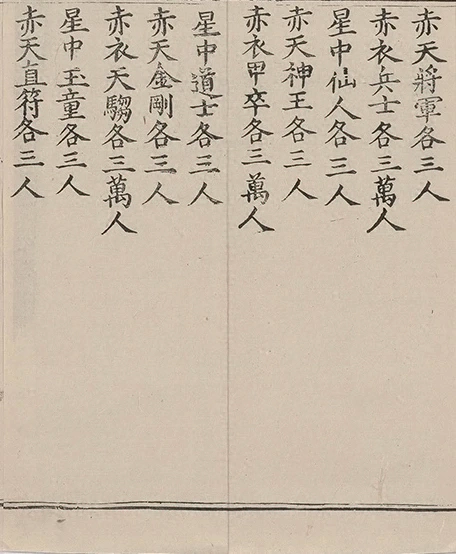 赤天將軍各三人
赤衣兵士各三萬人
星中仙人各三人
赤天神王各三人
赤衣甲卒各三萬人
星中道士各三人
赤天金剛各三人
赤衣天騶各三萬人
星中玉童各三人
赤天直符各三人